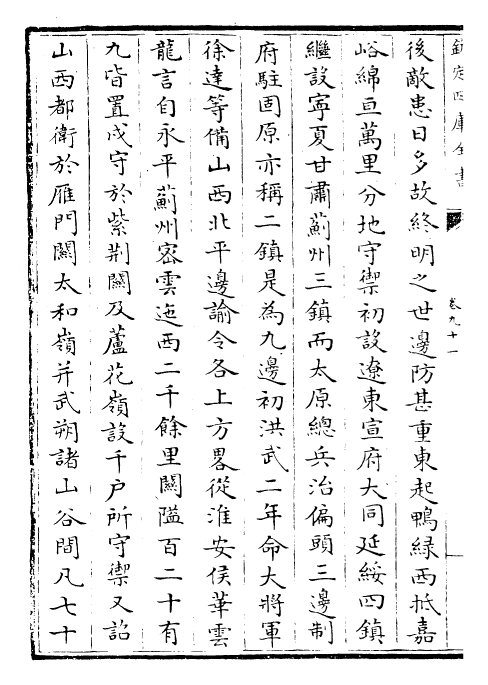 欽定四庫全書
卷九十一
後敵患日多故終明之世邊防甚重東起鴨緑西抵嘉
峪綿亘萬里分地守禦初設遼東宣府大同延綏四鎮
繼設寧夏甘肅薊州三鎮而太原總兵治偏頭三邊制
府駐固原亦稱二鎮是為九邊初洪武二年命大將軍
徐達等備山西北平邊諭令各上方畧從淮安侯華雲
龍言自永平薊州密雲迤西二千餘里闗隘百二十有
九皆置戍守於紫荆闗及蘆花嶺設千户所守禦又詔
山西都衛於雁門闗太和嶺并武朔諸山谷間凡七十